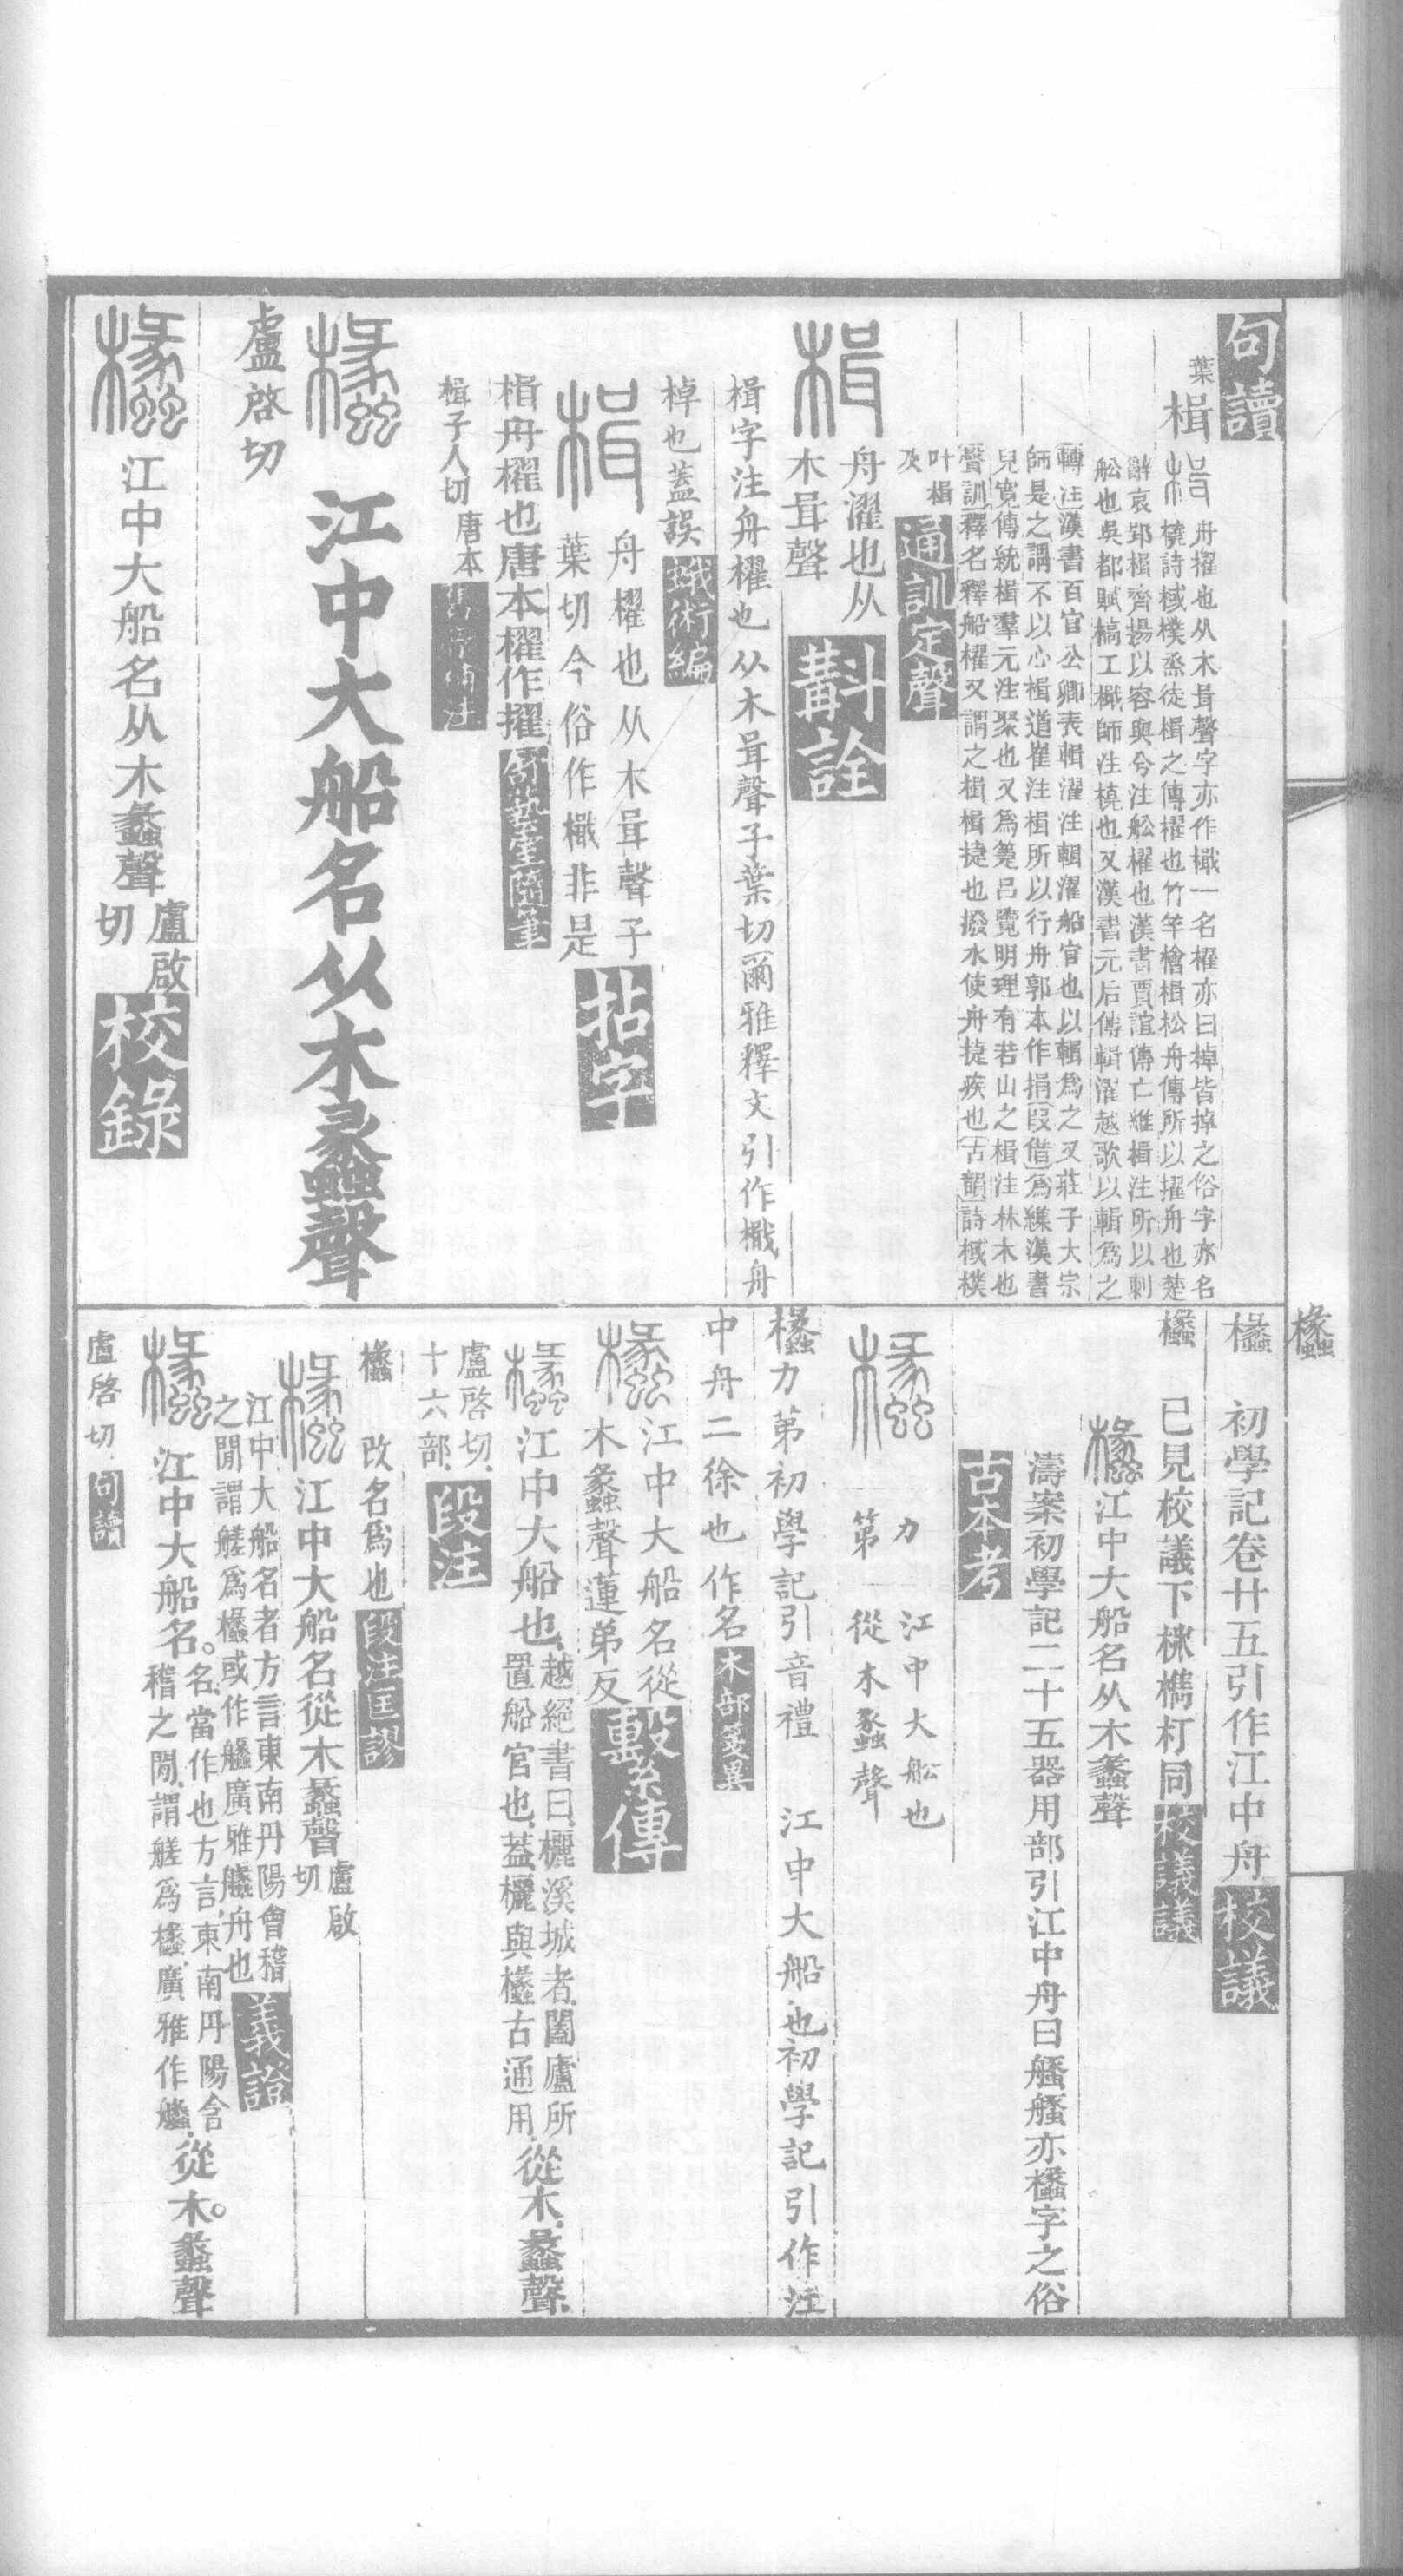 句讀
葉楫
舟擢也从木咠聲字亦作檝一名櫂亦曰棹皆掉之俗字亦名
橈詩棫樸烝徒楫之傳櫂也竹竿檜楫松舟傳所以擢舟也楚
辭哀郢楫齊揚以容與兮注船櫂也漢書賈誼傳亡維楫注所以刺
船也吳都賦槁工檝師注橈也又漢書元后傳輯濯越歌以輯爲之
轉注漢書百官公卿表輯濯注輯濯船官也以輯爲之又莊子大宗
師是之謂不以心楫道崔注楫所以行舟郭本作捐段借爲緝漢書
兒寬傳統楫羣元注聚也又爲箑呂覽明理有若山之楫注林木也
聲訓釋名釋船櫂又謂之楫楫捷也撥水使舟捷疾也古韻詩棫樸
叶楫
及
通訓定聲
舟濯也从
木咠聲
斠詮
楫字注舟櫂也从木咠聲子葉切爾雅釋文引作檝舟
棹也蓋誤
蛾術編
舟櫂也从木咠聲子
葉切今俗作檝非是
拈字
楫舟櫂也唐本櫂作擢
楫子入切
唐本
江中大船名从木蠡聲
盧啓切
江中大船名从木蠡聲
盧啟
切
校錄
欚
欚
初學記卷廿五引作江中舟
校議
欚
已見校議下楙檇朾同
校議議
江中大船名从木蠡聲
濤案初學記二十五器用部引江中舟曰艬艬亦欚字之俗
古本考
力
第
江中大船也
從木蠡聲
欚力第初學記引音禮 江中大船也初學記引作江
中舟二徐也作名
木部箋異
江中大船名從
木蠡聲蓮弟反
繫傳
江中大船也
越絕書曰欐溪城者闔廬所
置船官也蓋欐與欚古通用
從木蠡聲
盧啓切
十六部
段注
欚
改名爲也
段注匡謬
江中大船名從木蠡聲
盧啟
切
江中大船名者方言東南丹陽會稽
之閒謂艖爲欚或作艬廣雅艬舟也
義證
江中大船名
名當作也方言東南丹陽會
稽之閒謂艖爲欚廣雅作艬
從木蠡聲
盧啓切
句讀